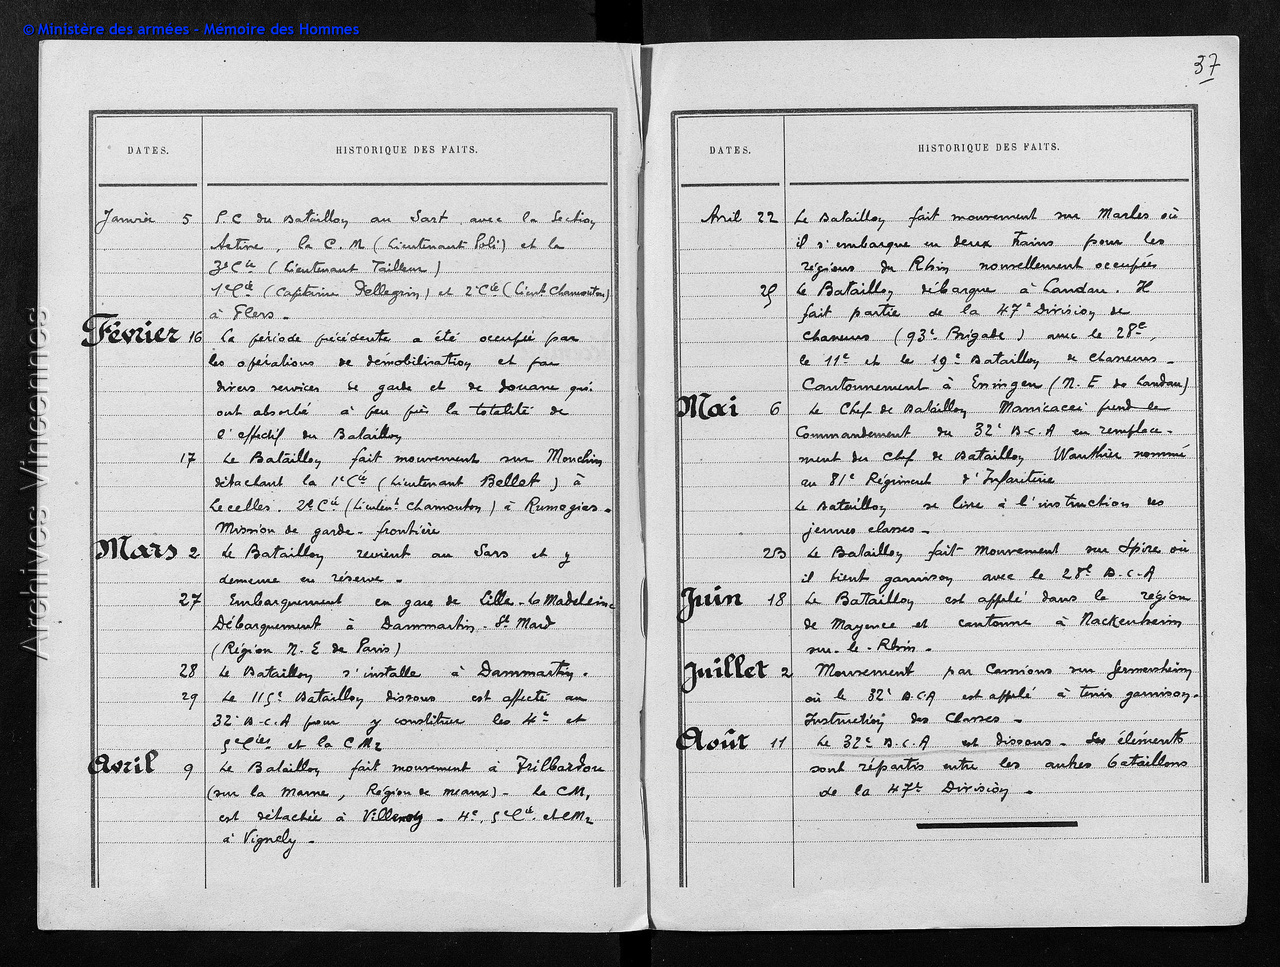 © Ministère des armées - Mémoire des Hommes
Archives Vincennes
37
DATES.
HISTORIQUE DES FAITS.
Janvier 5 P.C du Bataillon au Sart, avec la Section
Active, la C.M (Lieutenant Poli) et la
3e Cie (Lieutenant Tailleur)
1e Cie (Capitaine Pellegrin) et 2e Cie (Lieut Chamouton)
à Flers.
Février 16 La période précédente a été occupée par
les opérations de démobilisation et par
divers services de garde et de douane qui
ont absorbé à peu près la totalité de
l'effectif du Bataillon
17 Le Bataillon fait mouvement sur Mouchin
détachant la 1e Cie (Lieutenant Bellet) à
Lecelles. 2e Cie (Lieutent Chamouton) à Rumegies.
Mission de garde-frontière
Mars 2 Le Bataillon revient au Sars et y
demeure en réserve.
27 Embarquement en gare de Lille-La Madeleine
Débarquement à Dammartin-St Mard
(Région N.E de Paris)
28 Le Bataillon s'installe à Dammartin.
29 Le 115e Bataillon dissous est affecté au
32e B.C.A pour y constituer les 4e et
5e Cies et la CM2
Avril 9 Le Bataillon fait mouvement à Trilbardou
(sur la Marne, Région de Meaux) - la CM1
est détachée à Villenoy - 4e, 5e Cie et CM2
à Vignely.
DATES.
HISTORIQUE DES FAITS.
Avril 22 Le Bataillon fait mouvement sur Marles où
il s'embarque en deux trains pour les
régions du Rhin nouvellement occupées
25 Le Bataillon débarque à Landau. Il
fait partie de la 47e Division de
Chasseurs (93e Brigade) avec le 28e,
le 11e et le 19e Bataillon de Chasseurs.
Cantonnement à Essingen (N.E de Landau)
Mai 6 Le Chef de Bataillon Mannicacci prend le
Commandement du 32e B.C.A en remplace-
ment du Chef de Bataillon Wauthier nommé
au 81e Régiment d'Infanterie
Le Bataillon se livre à l'instruction des
jeunes classes.
23 Le Bataillon fait Mouvement sur Spire où
il tient garnison avec le 28e B.C.A
Juin 18 Le Battaillon est appelé dans la région
de Mayence et cantonne à Nackenheim
sur-le-Rhin.
Juillet 2 Mouvement par Camions sur Germersheim
où le 32e B.C.A est appelé à tenir garnison.
Instruction des Classes.
Août 11 Le 32e B.C.A est dissous. Ses éléments
sont répartis entre les autres bataillons
de la 47e Division.